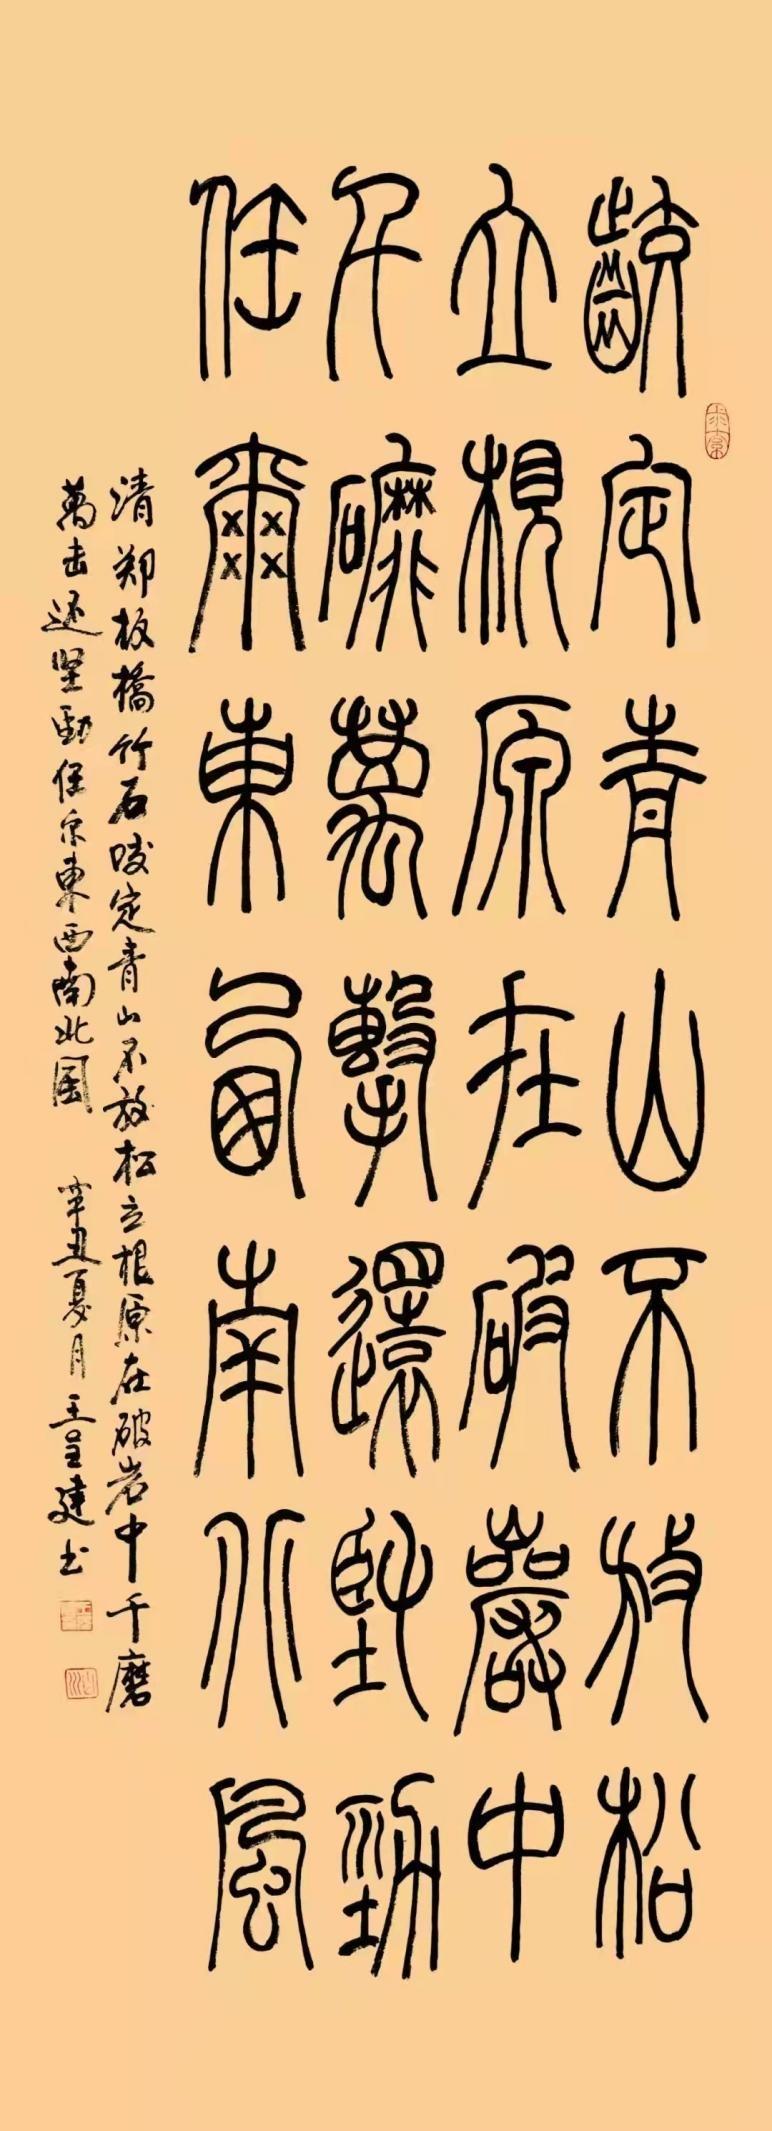 齩定青山不放松
立根原在破巖中
千䃺萬擊還堅勁
任爾東西南北風
清郑板橋竹石咬定青山不放松立根原在破岩中千磨
萬击还坚劲任尔東西南北風 辛丑夏月王呈建书